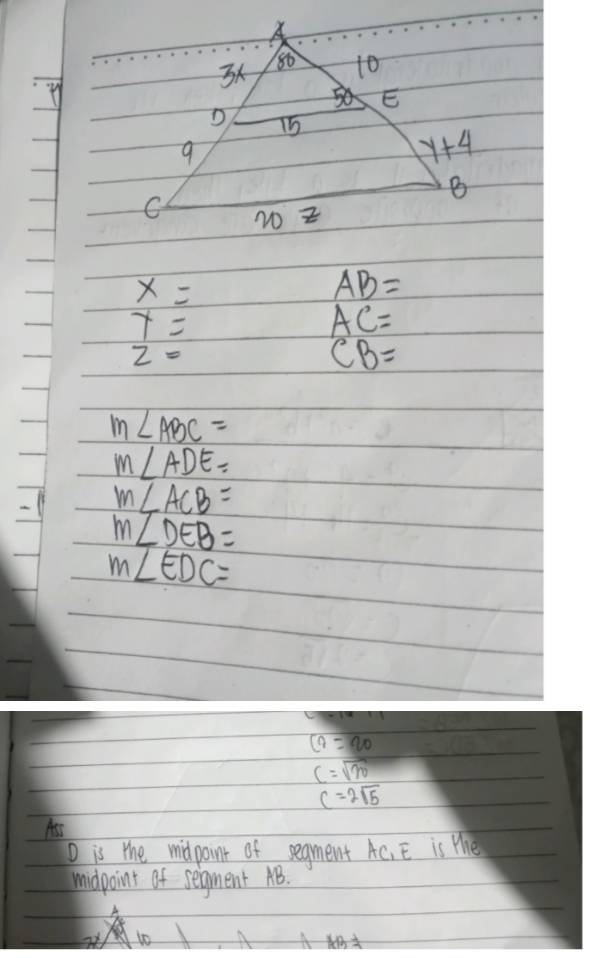 A
3x 80 10
50 E
D
15
9
y+4
C B
20 z
X = AB=
Y = AC=
Z = CB=
m∠ABC =
m∠ADE=
m∠ACB =
m∠DEB=
m∠EDC=
= 20
C = √20
C = 2√5
Ass
D is the midpoint of segment AC, E is the
midpoint of segment AB.
A
10 AB=